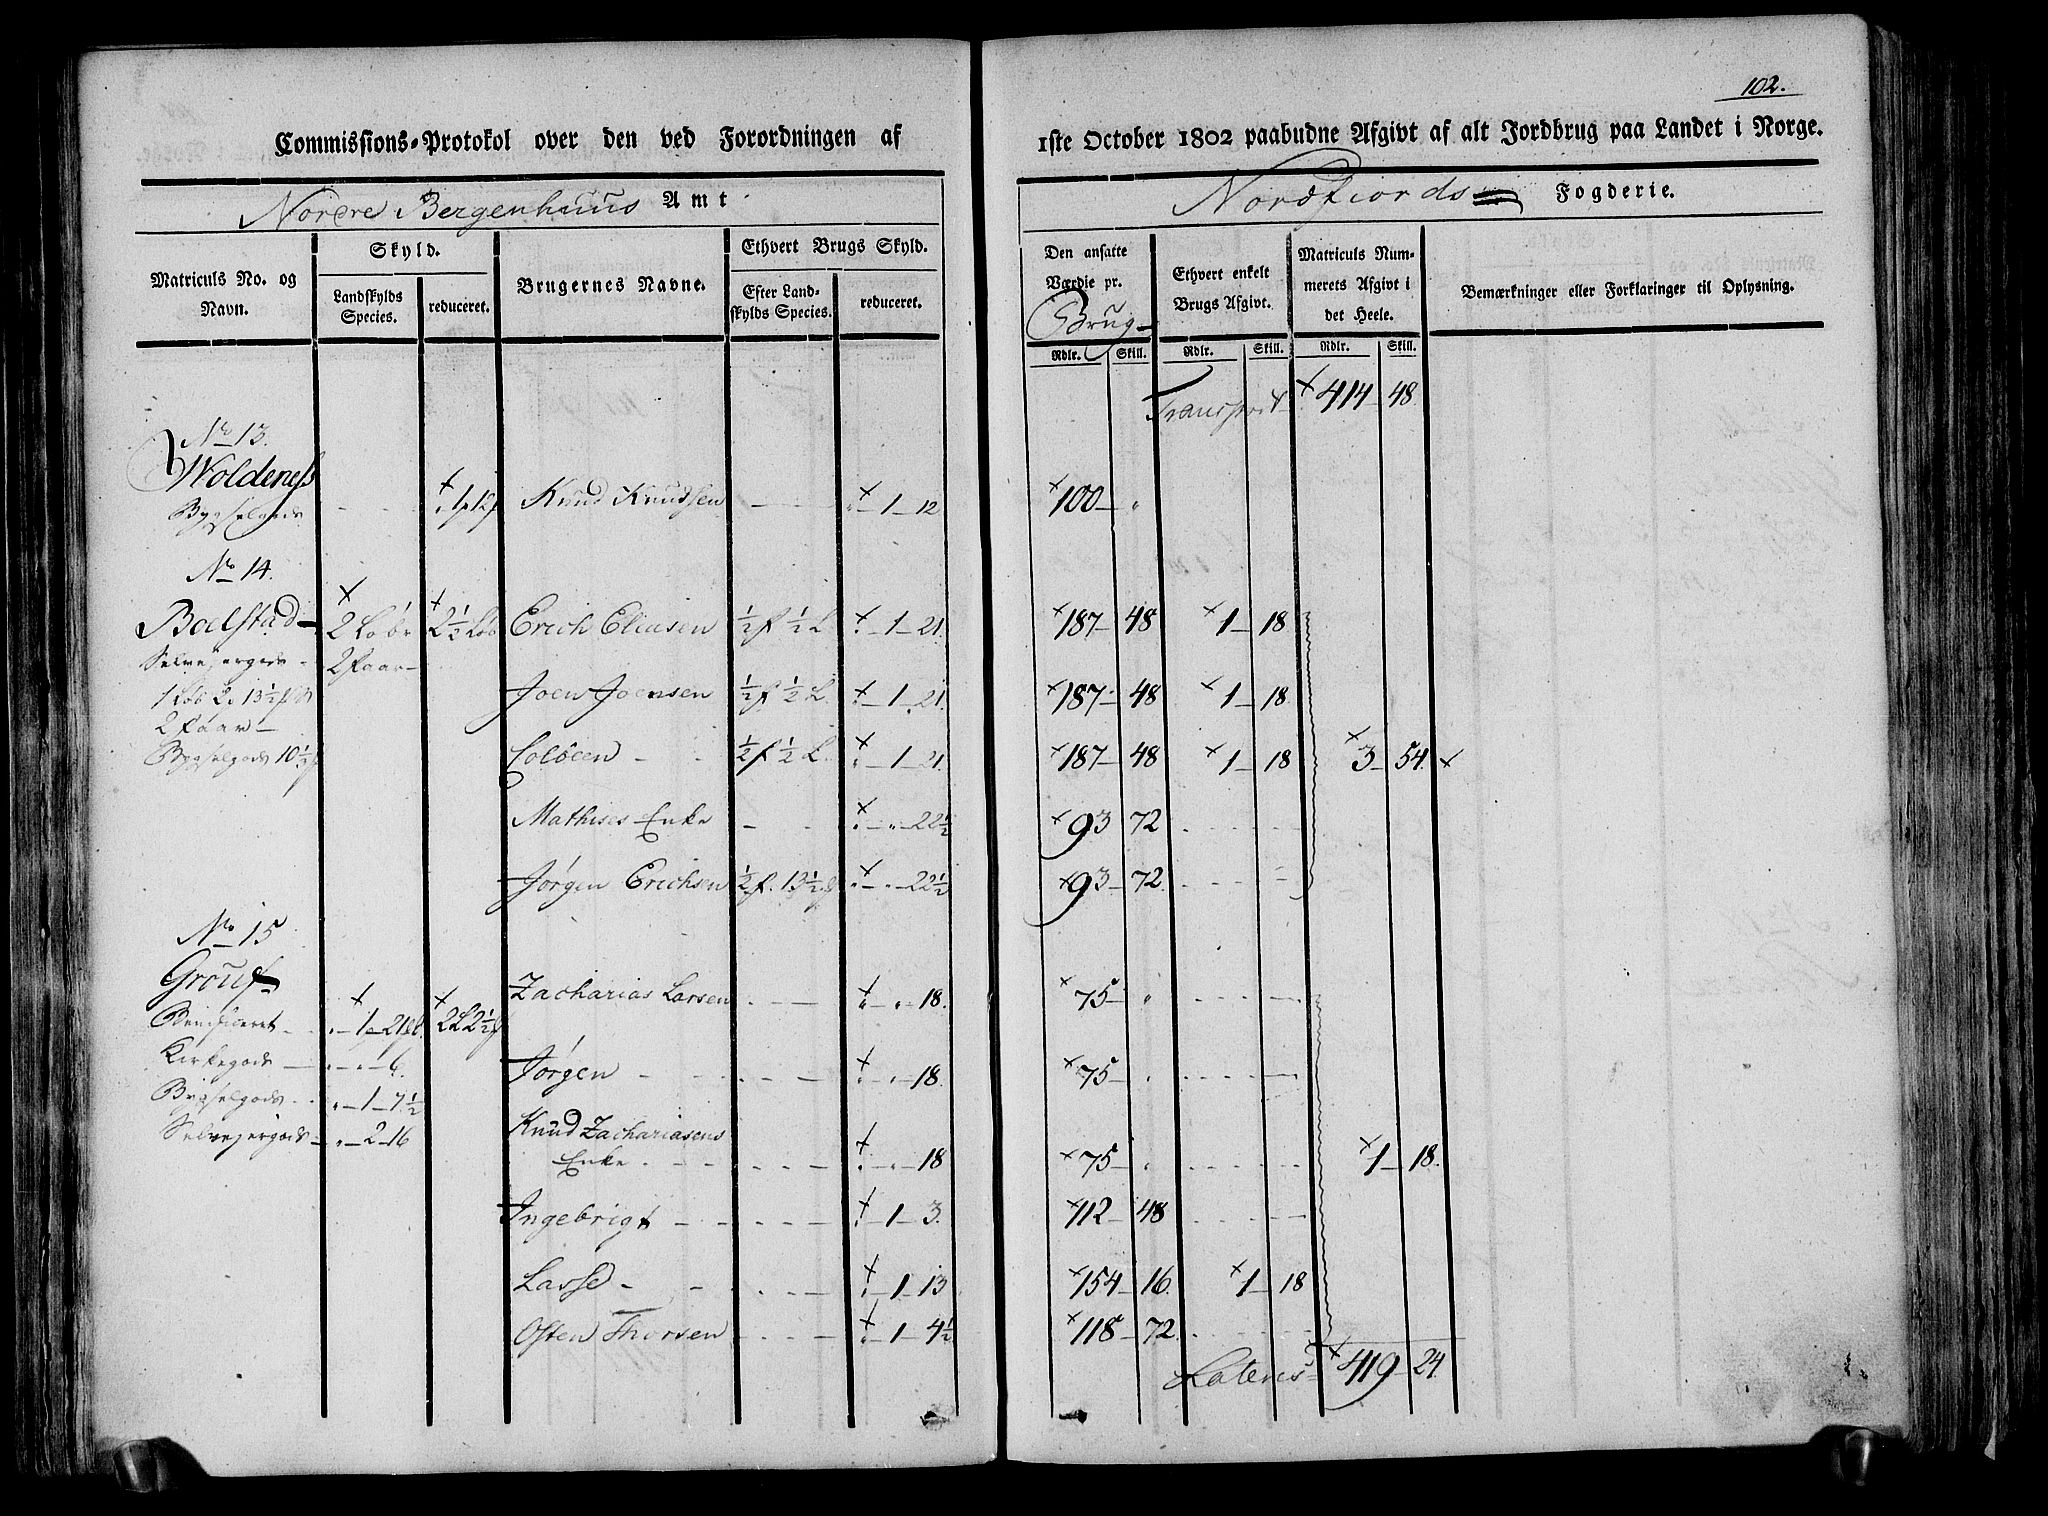 102.
Commissions-Protokol over den ved Forordningen af 1ste October 1802 paabudne Afgivt af alt Jordbrug paa Landet i Norge.
Nordre Bergenhuus Amt Nordfiords Fogderie.
Matriculs No. og Navn.
Skyld.
Landskylds Species.
reduceret.
Brugernes Navne.
Ethvert Brugs Skyld.
Efter Landskylds Species.
reduceret.
Den ansatte Værdie pr. Brug
Ethvert enkelt Brugs Afgivt.
Matriculs Nummerets Afgivt i det Heele.
Bemærkninger eller Forklaringer til Oplysning.
Rdlr. Skill. Rdlr. Skill. Rdlr. Skill.
Transport 414 48
No 13.
Woldeness 1 12 Knud Knudsen 1 12 100 "
Bygselgods
No 14.
Boelstad 2 Løbe 2½ Løb Erich Eliasen ½ f ½ L 1 21 187 48 1 18
Selvejergods 2 Faar
1 Løb 2 13½
Joen Joensen ½ f ½ L 1 21 187 48 1 18
2 Faar
Bygselgods 10½ Colbeen ½ f ½ L 1 21 187 48 1 18 3 54
Mathises Enke " 22½ 93 72
Jørgen Erichsen ½ f. 13½ " 22½ 93 72
No 15
Grouf
Zacharias Larsen " 18 75 "
Beneficeret 1 21 2 L 2½
Kirkegods " 6 Jørgen " 18 75 "
Bygselgods 1 7½
Selvejergods 2 16 Knud Zachariasens
Enke " 18 75 " 1 18
Ingebrigt 1 3 112 48
Lasse 1 13 154 16 1 18
Osten Thorsen 1 4½ 118 72
Lateris 419 24